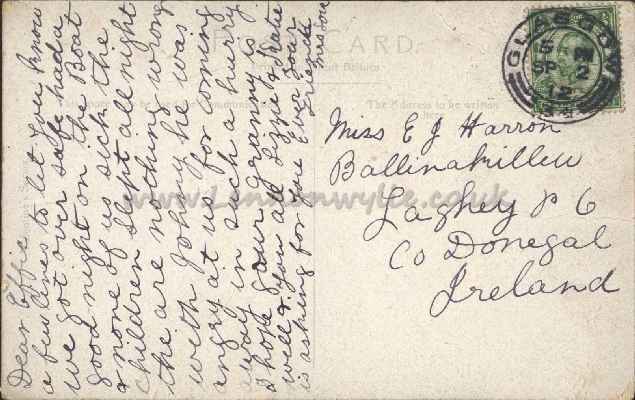 POST CARD.
Printed in Great Britain
This space may be used for communication
The Address to be written
here
Dear Effie
a few lines to let you know
we got over safe had a
good night on the Boat
& none of us sick the
children slept all night
the are nothing wrong
with Johny he was
angry at us for coming
away in such a hurry
I hope your Granny is
well & you all Lizzie & Katie
is asking for you Ever your
Friend
GLASGOW
12
Miss E J Harron
Ballinakillew
Laghey P O
Co Donegal
Ireland
www.Lennonwylie.co.uk